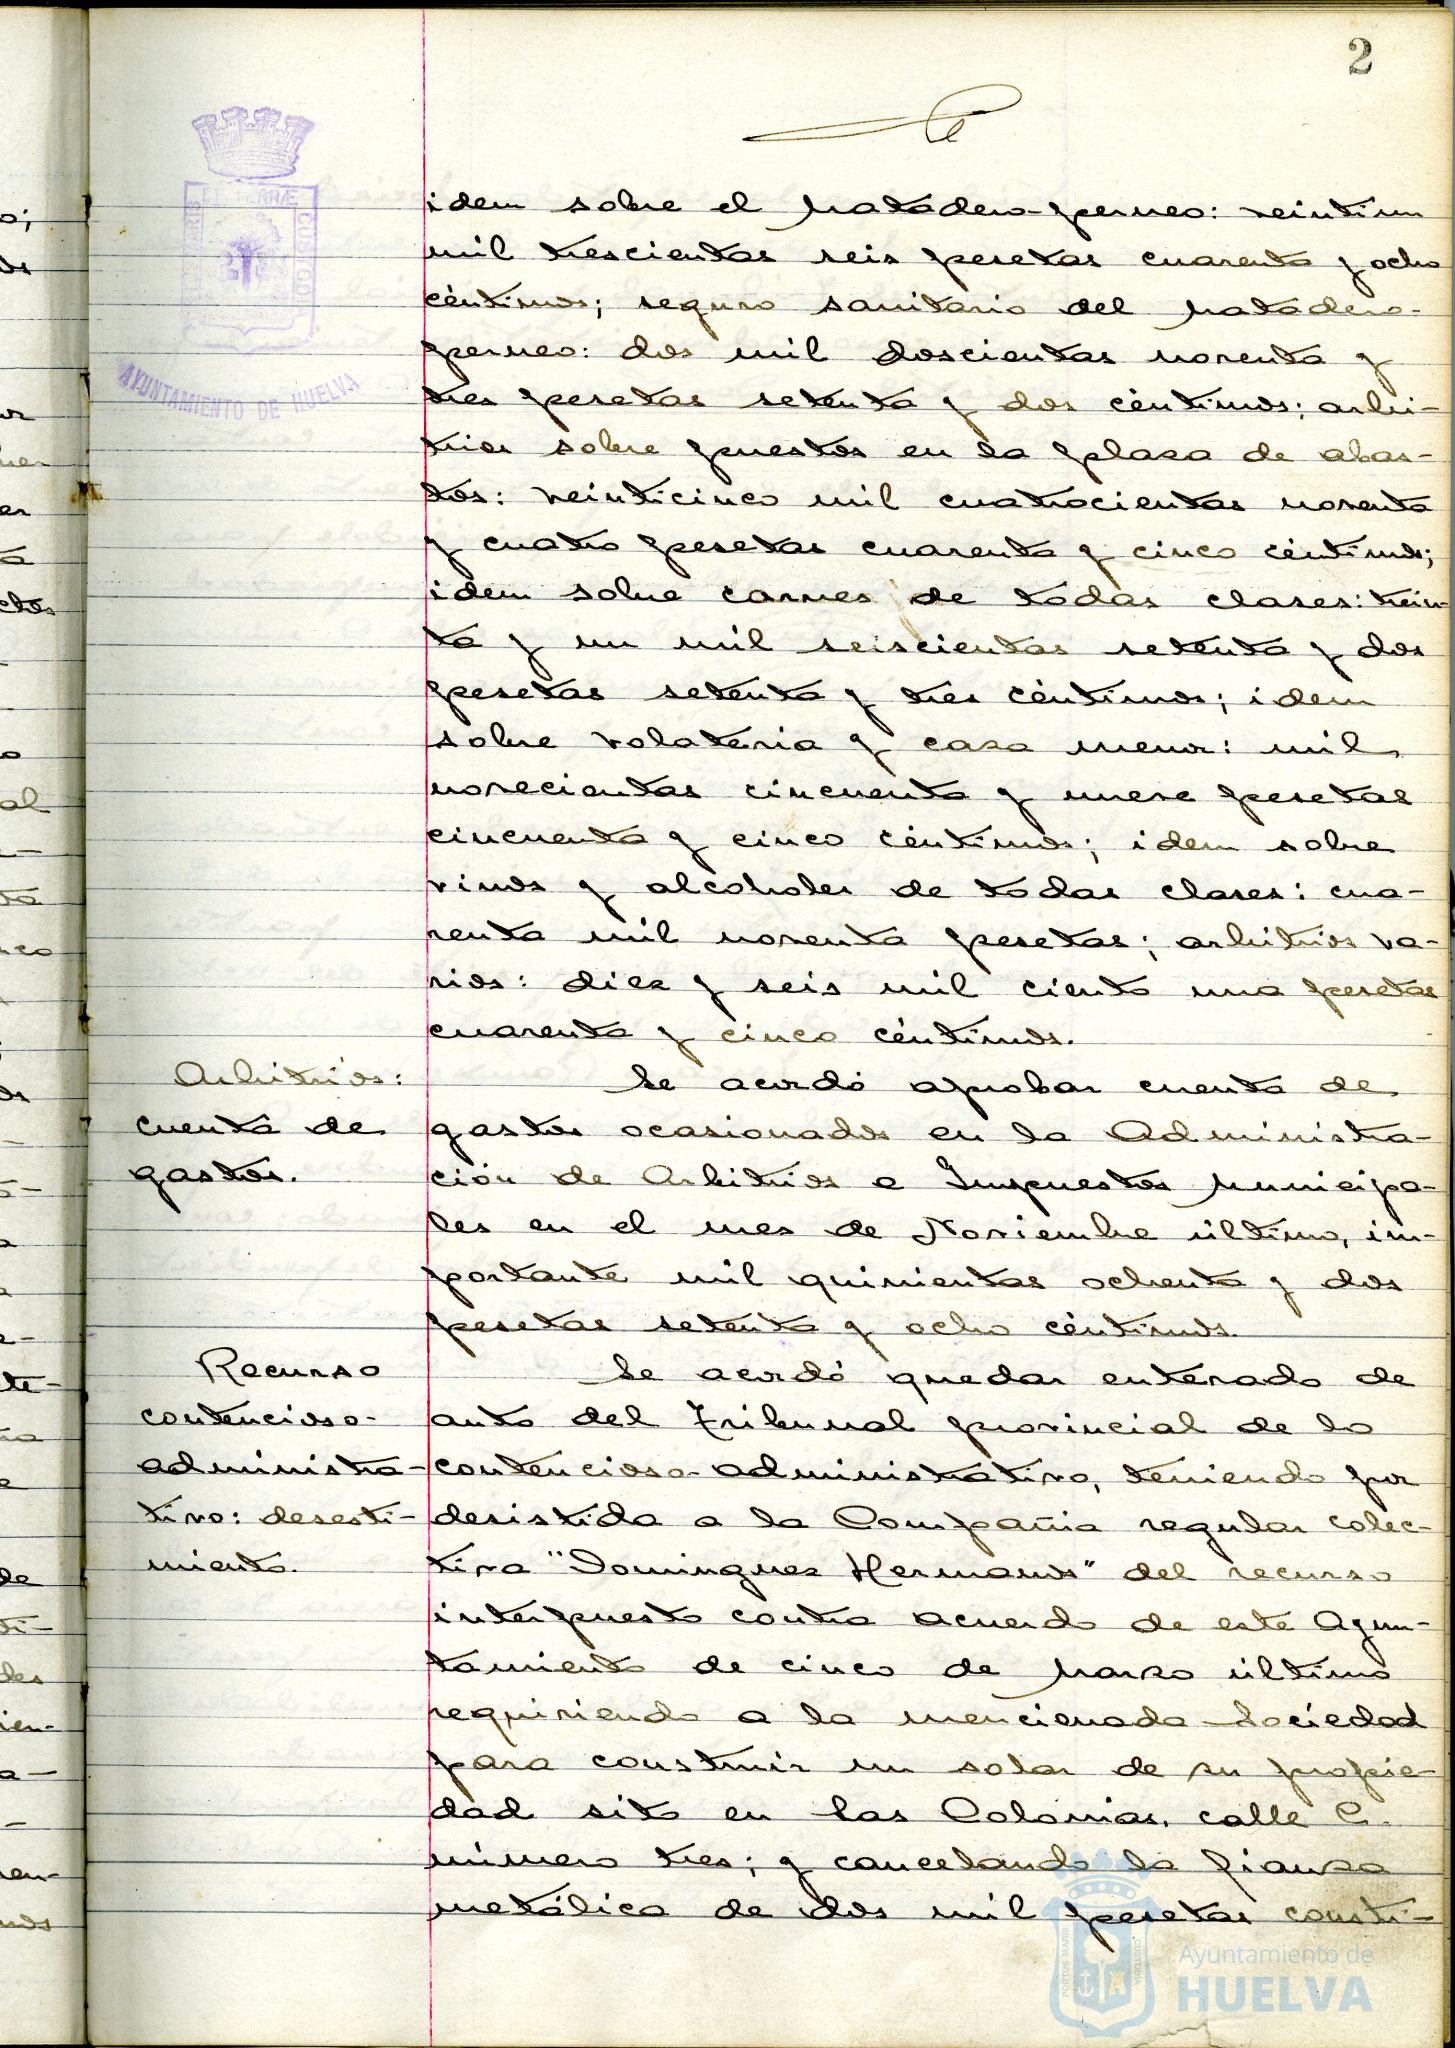 2
idem sobre el Matadero-perneo: veintiun
mil trescientas seis pesetas cuarenta y ocho
céntimos; seguro sanitario del Matadero-
perneo: dos mil doscientas noventa y
tres pesetas setenta y dos céntimos; arbi-
trios sobre puestos en la plaza de abas-
tos: veinticinco mil cuatrocientas noventa
y cuatro pesetas cuarenta y cinco céntimos;
idem sobre carnes de todas clases: trein-
ta y un mil seiscientas setenta y dos
pesetas setenta y tres céntimos; idem
sobre volatería y caza menor: mil
novecientas cincuenta y nueve pesetas
cincuenta y cinco céntimos; idem sobre
vinos y alcoholes de todas clases: cua-
renta mil noventa pesetas; arbitrios va-
rios: diez y seis mil ciento una pesetas
cuarenta y cinco céntimos.
Arbitrios:
cuenta de
gastos.
Se acordó aprobar cuenta de
gastos ocasionados en la Administra-
ción de Arbitrios e Impuestos Municipa-
les en el mes de Noviembre último, im-
portante mil quinientas ochenta y dos
pesetas setenta y ocho céntimos.
Recurso
contencioso-
administra-
tivo: desesti-
miento.
Se acordó quedar enterado de
auto del Tribunal provincial de lo
contencioso-administrativo, teniendo por
desistida a la Compañia regular colec-
tiva "Dominguez Hermanos" del recurso
interpuesto contra acuerdo de este Ayun-
tamiento de cinco de Marzo último
requiriendo a la mencionada Sociedad
para construir un solar de su propie-
dad sito en las Colonias, calle C.
número tres; y cancelando la fianza
metálica de dos mil pesetas consti-
AYUNTAMIENTO DE HUELVA
Ayuntamiento de
HUELVA